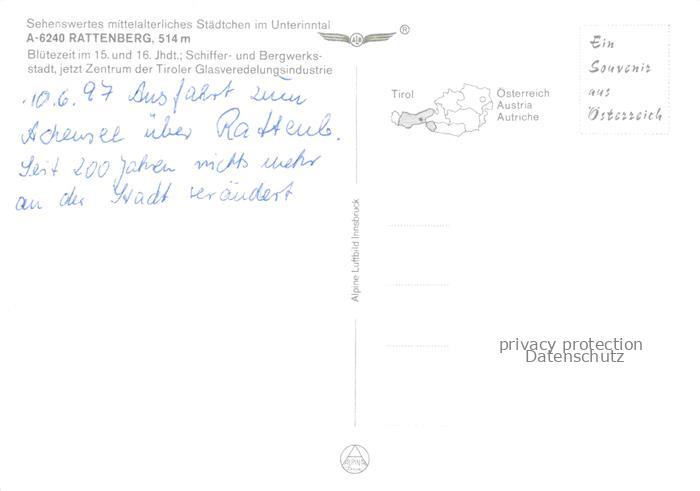 Sehenswertes mittelalterliches Städtchen im Unterinntal
A-6240 RATTENBERG, 514 m
Blütezeit im 15. und 16. Jhdt.; Schiffer- und Bergwerks-
stadt, jetzt Zentrum der Tiroler Glasveredelungsindustrie
10.6.97 Ausfahrt zum
Achensee über Rattenb.
Seit 200 Jahren nichts mehr
an der Stadt verändert
®
Tirol
Österreich
Austria
Autriche
Ein
Souvenir
aus
Österreich
Alpine Luftbild Innsbruck
privacy protection
Datenschutz
ALPINE